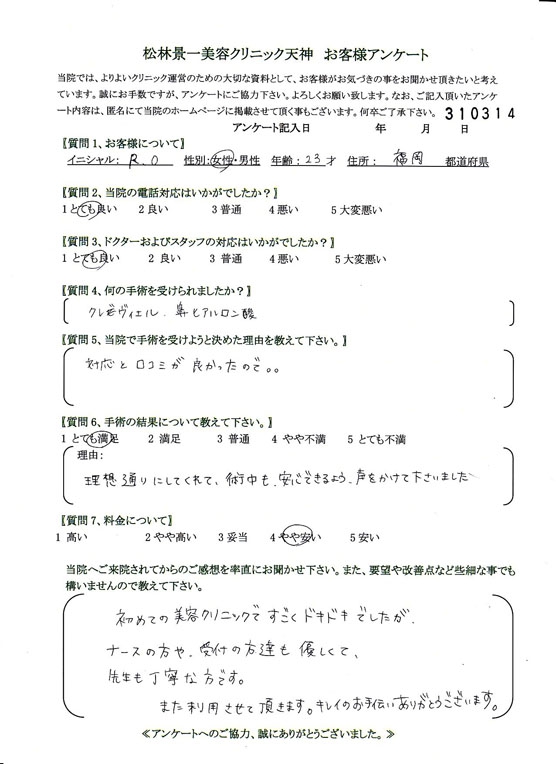 松林景一美容クリニック天神 お客様アンケート
当院では、よりよいクリニック運営のための大切な資料として、お客様がお気づきの事をお聞かせ頂きたいと考え
ています。誠にお手数ですが、アンケートにご協力下さい。よろしくお願い致します。なお、ご記入頂いたアンケ
ート内容は、匿名にて当院のホームページに掲載させて頂く事もございます。何卒ご了承下さい。 310314
アンケート記入日 年 月 日
【質問1、お客様について】
イニシャル: R.O 性別:女性・男性 年齢:23才 住所: 福岡 都道府県
【質問2、当院の電話対応はいかがでしたか?】
1 とても良い 2 良い 3 普通 4 悪い 5 大変悪い
【質問3、ドクターおよびスタッフの対応はいかがでしたか?】
1 とても良い 2 良い 3 普通 4 悪い 5 大変悪い
【質問4、何の手術を受けられましたか?】
クレヴィエル. 鼻ヒアルロン酸
【質問5、当院で手術を受けようと決めた理由を教えて下さい。】
対応と口コミが良かったので。。
【質問6、手術の結果について教えて下さい。】
1 とても満足 2 満足 3 普通 4 やや不満 5 とても不満
理由:
理想通りにしてくれて、術中も、安心できるよう、声をかけて下さいました
【質問7、料金について】
1 高い 2 やや高い 3 妥当 4 やや安い 5 安い
当院へご来院されてからのご感想を率直にお聞かせ下さい。また、要望や改善点など些細な事でも
構いませんので教えて下さい。
初めての美容クリニックですごくドキドキでしたが、
ナースの方や、受付の方達も優しくて、
先生も丁寧な方です。
また利用させて頂きます。キレイのお手伝いありがとうございます。
≪アンケートへのご協力、誠にありがとうございました。≫